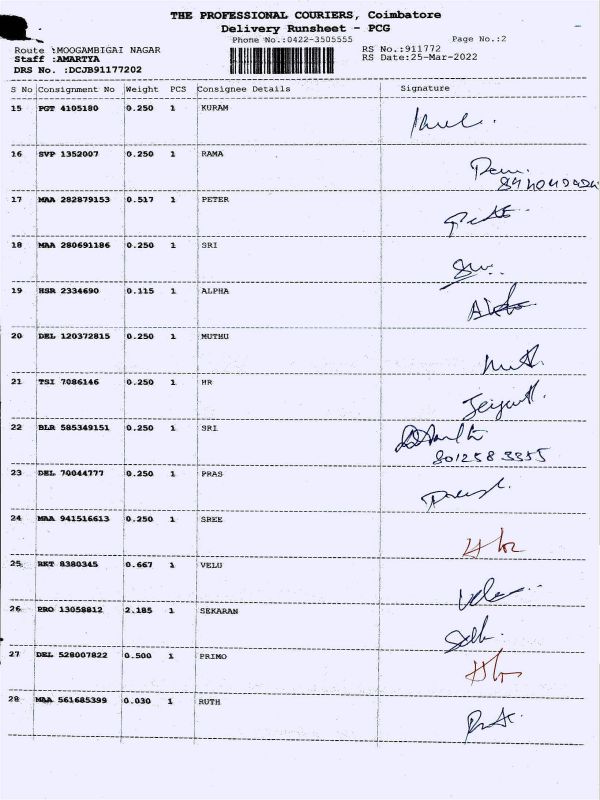 THE PROFESSIONAL COURIERS, Coimbatore
Delivery Runsheet - PCG
Phone No.:0422-3505555 Page No.:2
Route :MOOGAMBIGAI NAGAR RS No.:911772
Staff :AMARTYA RS Date:25-Mar-2022
DRS No. :DCJB91177202
S No Consignment No Weight PCS Consignee Details Signature
15 PGT 4105180 0.250 1 KURAM
16 SVP 1352007 0.250 1 RAMA
17 MAA 282879153 0.517 1 PETER
18 MAA 280691186 0.250 1 SRI
19 HSR 2334690 0.115 1 ALPHA
20 DEL 120372815 0.250 1 MUTHU
21 TSI 7086146 0.250 1 HR
22 BLR 585349151 0.250 1 SRI
8012583355
23 DEL 70044777 0.250 1 PRAS
24 MAA 941516613 0.250 1 SREE
25 RKT 8380345 0.667 1 VELU
26 PRO 13058812 2.185 1 SEKARAN
27 DEL 528007822 0.500 1 PRIMO
28 MAA 561685399 0.030 1 RUTH